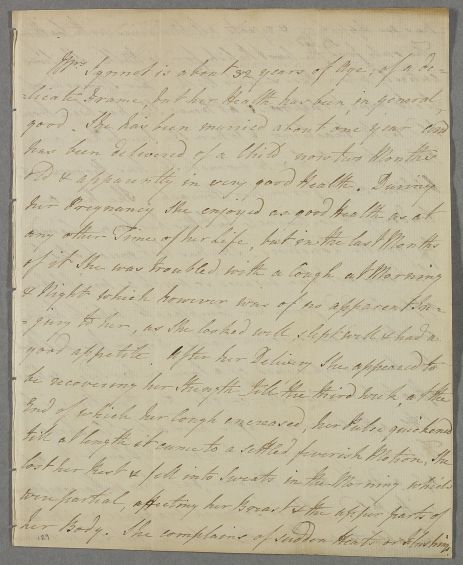 Mrs Synnot is about 32 years of Age, of a de=
=licate Frame, but her Health has been, in general,
good. She has been married about one year and
has been delivered of a Child, now two Months
old & apparently in very good Health. During
her Pregnancy She enjoyed as good Health as at
any other Time of her Life, but in the last Months
of it She was troubled with a Cough at Morning
& Night which however was of no apparent In=
=jury to her, as She looked well, slept well & had a
good appetite. After her Delivery She appeared to
be recovering her Strength till the third Week, at the
End of which her Cough encreased, her Pulse quickened
till at length it came to a settled feverish Motion, She
lost her Rest & fell into Sweats in the Morning which
were partial, affecting her Breast & the upper parts of
her Body. She complains of sudden Heats or Flushings
129